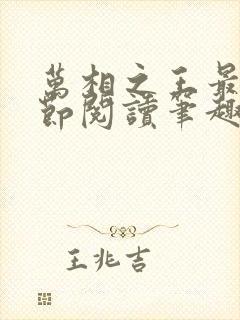 萬相之王最
節閱讀筆趣
王兆吉